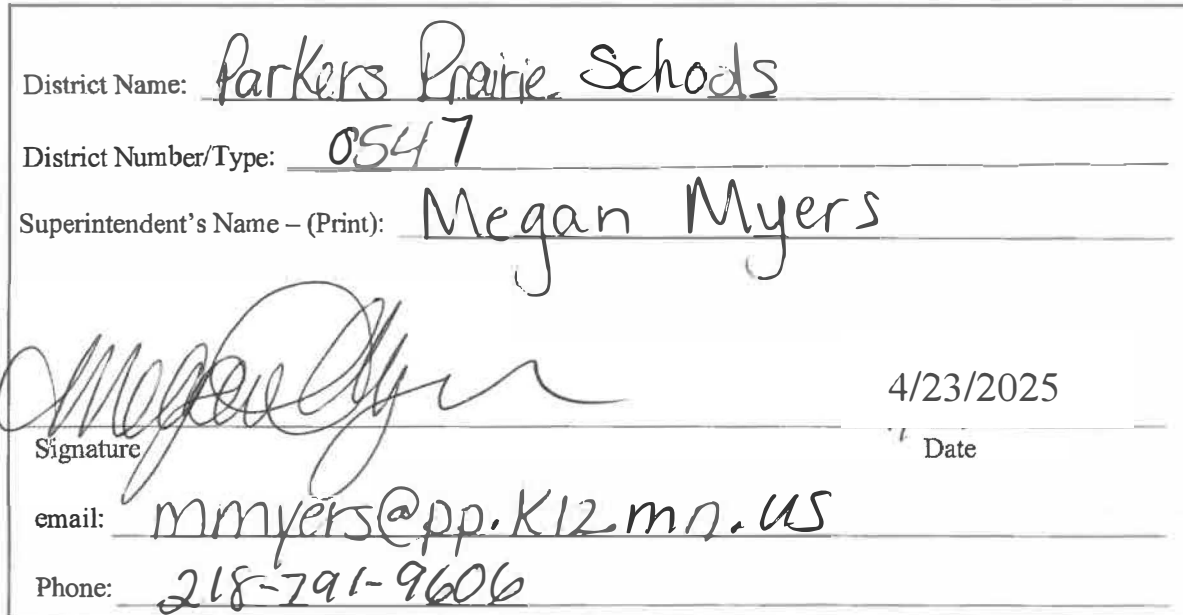 District Name: Parkers Prairie Schools
District Number/Type: 0547
Superintendent's Name – (Print): Megan Myers
Megan Myers 4/23/2025
Signature Date
email: mmyers@pp.k12.mn.us
Phone: 218-791-9606